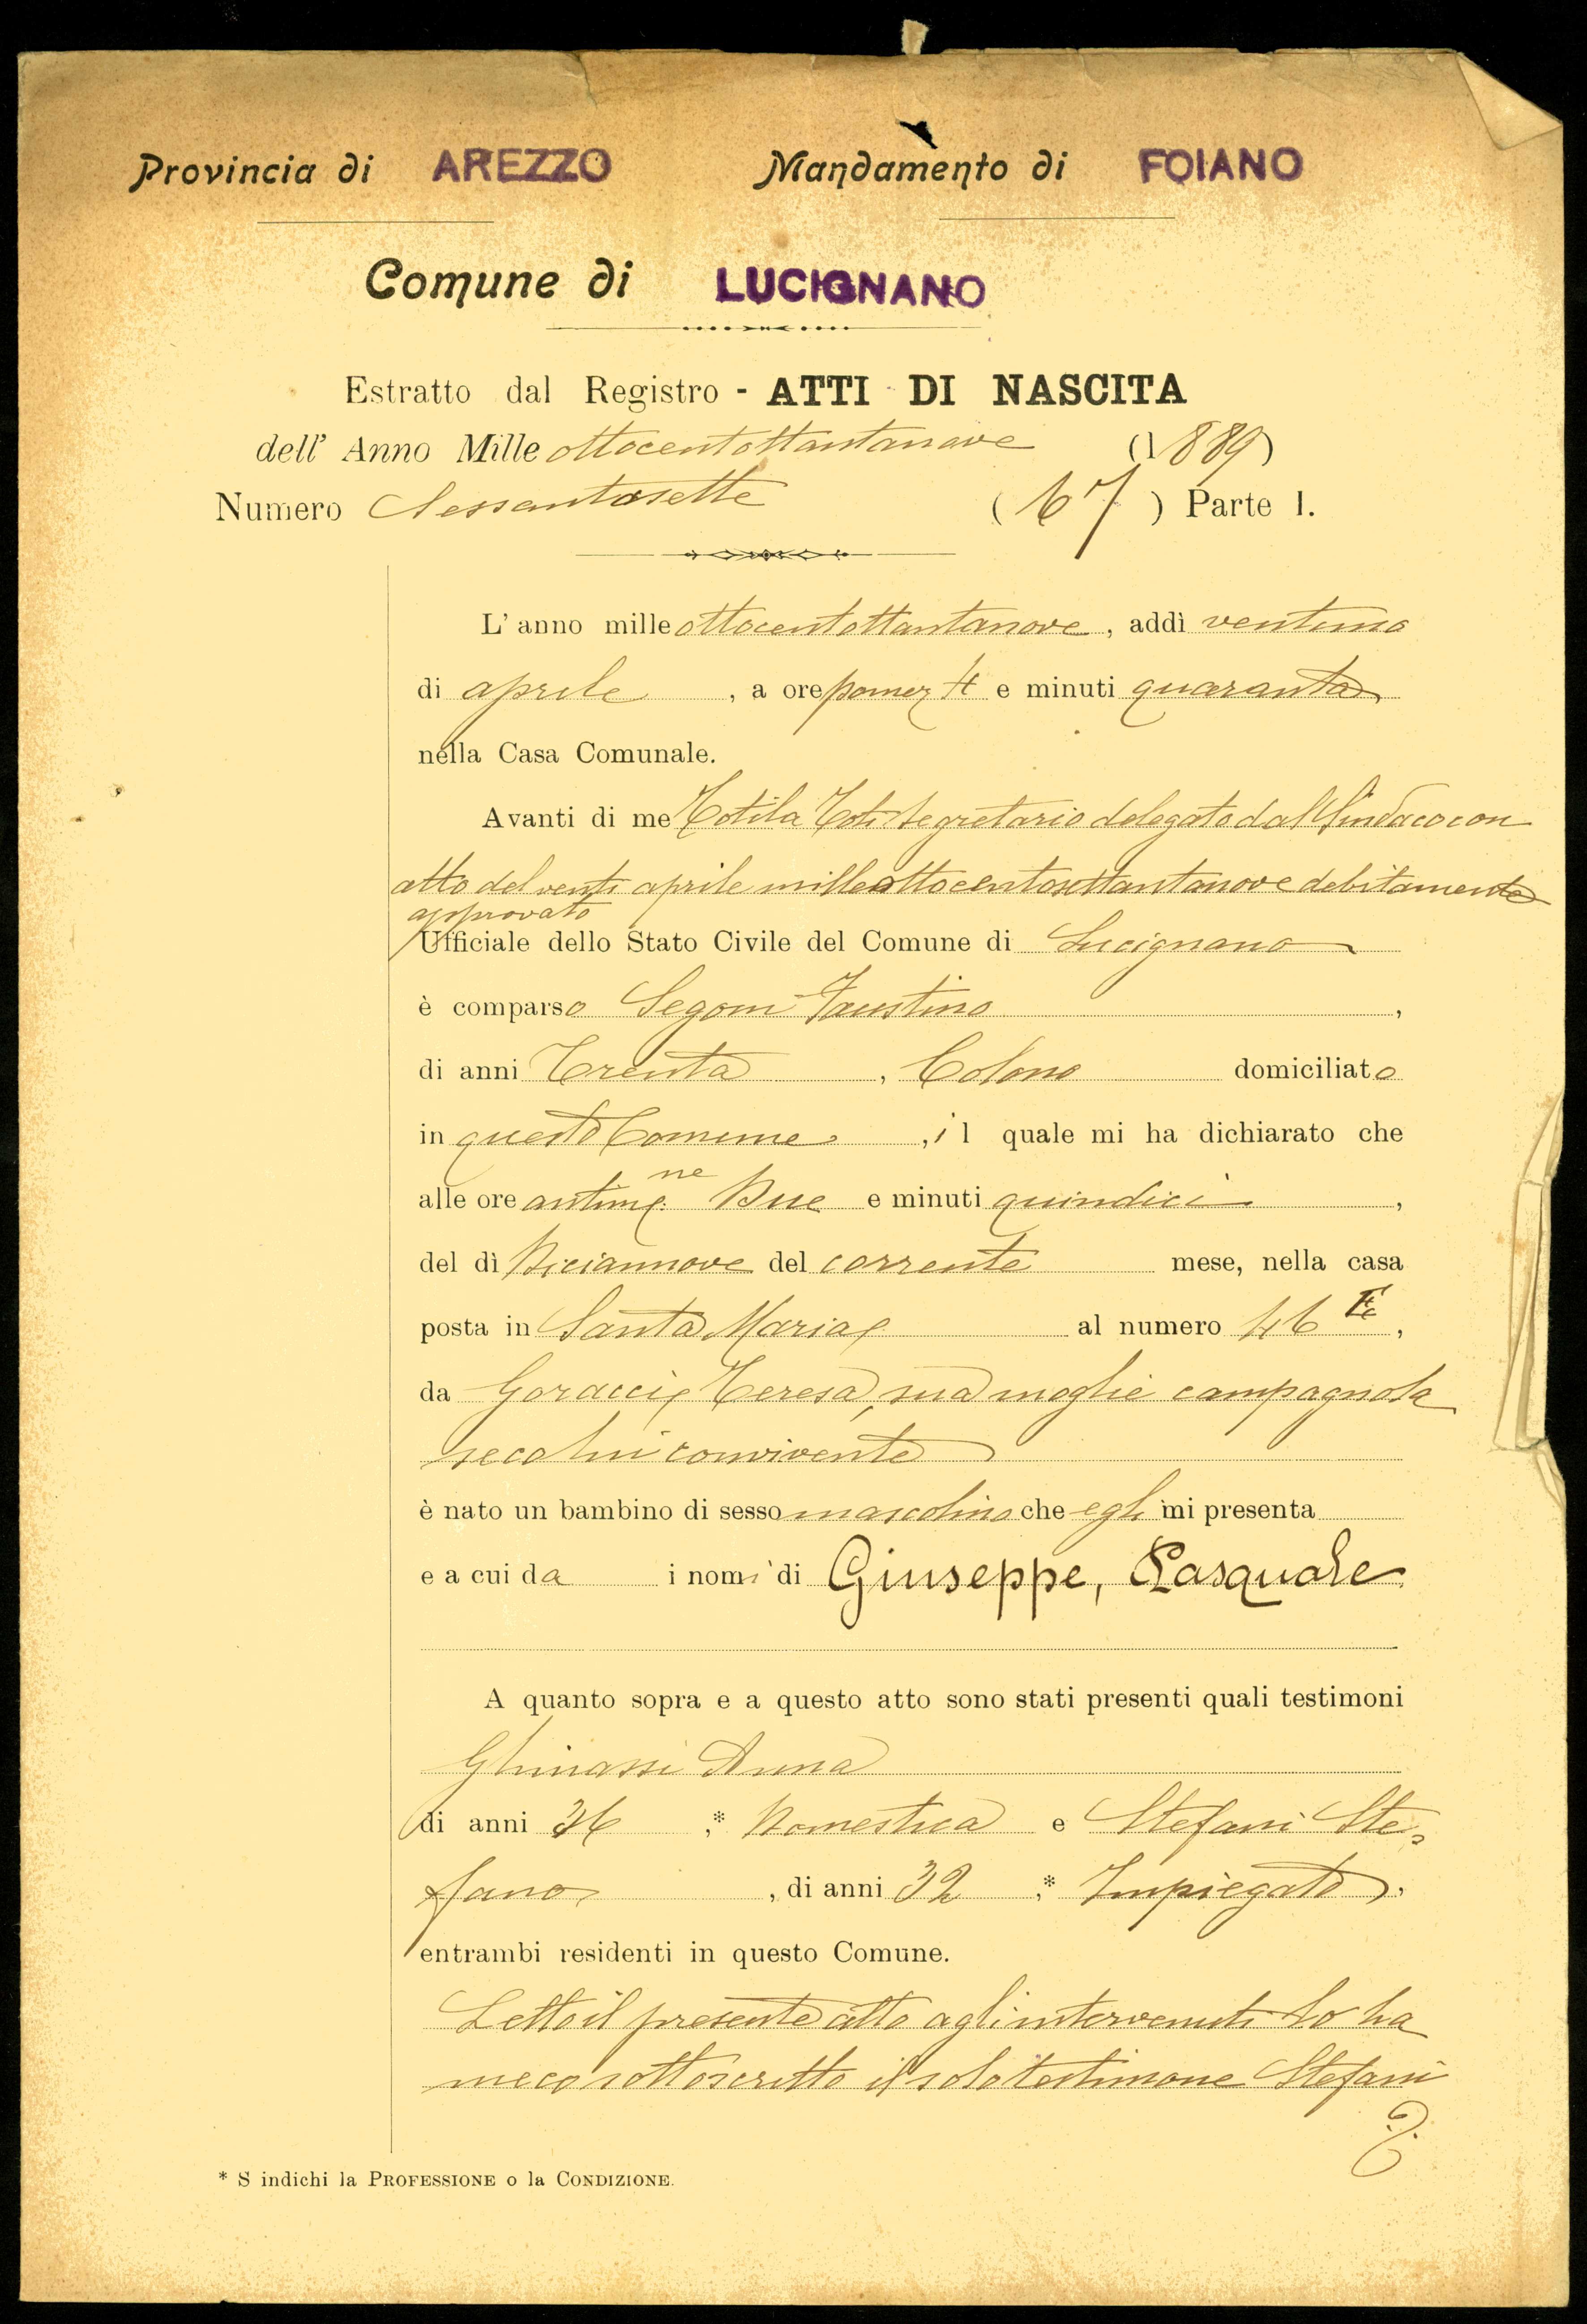 Provincia di AREZZO Mandamento di FOIANO
Comune di LUCIGNANO
Estratto dal Registro - ATTI DI NASCITA
dell' Anno Mille ottocentottantanove (1889)
Numero Sessantasette (67) Parte I.
L' anno mille ottocentottantanove, addì ventuno
di aprile, a ore pomez 4 e minuti quaranta
nella Casa Comunale.
Avanti di me Totila Toti Segretario delegato dal Sindaco con
atto del venti aprile milleottocentosettantanove debitamente
approvato
Ufficiale dello Stato Civile del Comune di Lucignano
è comparso Segoni Faustino,
di anni Trenta, Colono domiciliato
in questo Comune, il quale mi ha dichiarato che
alle ore antimne Due e minuti quindici,
del dì Diciannove del corrente mese, nella casa
posta in Santa Maria al numero 46,
da Goracci Teresa, sua moglie campagnola
seco lui convivente
è nato un bambino di sesso mascolino che egli mi presenta
e a cui da i nomi di Giuseppe, Pasquale
A quanto sopra e a questo atto sono stati presenti quali testimoni
Ghinassi Anna
di anni 36,* Domestica e Stefani Ste=
fano, di anni 32,* Impiegato,
entrambi residenti in questo Comune.
Letto il presente atto agli intervenuti lo ha
meco sottoscritto il solo testimone Stefani
* S indichi la PROFESSIONE o la CONDIZIONE.